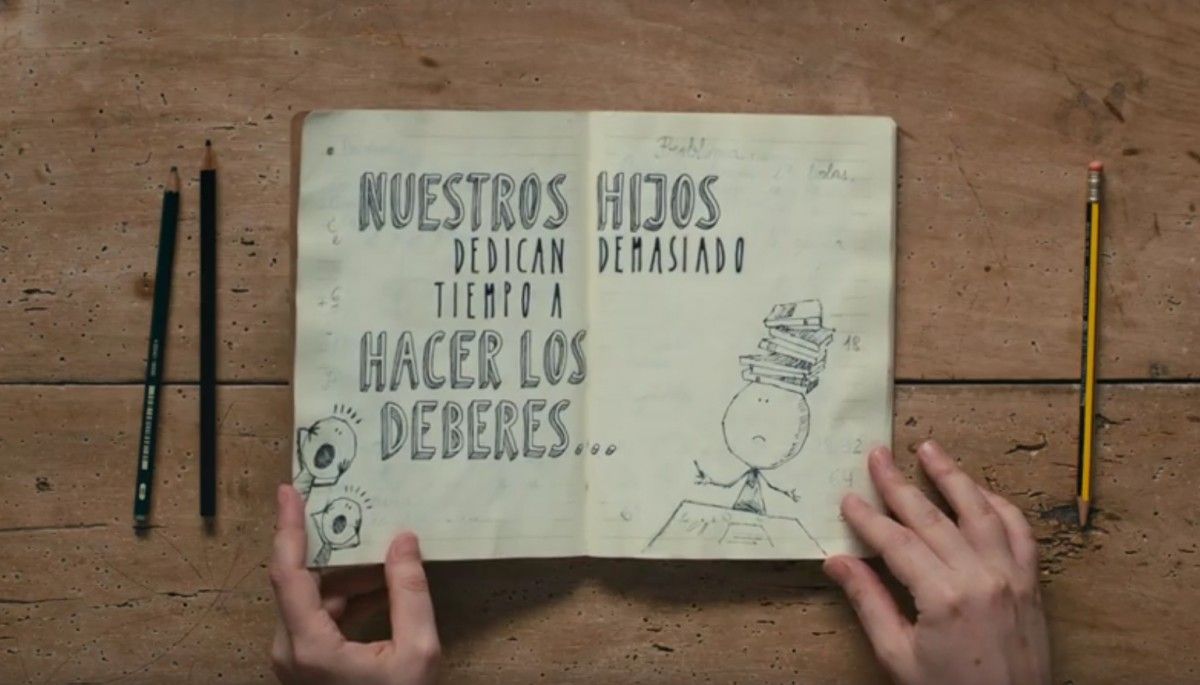 NUESTROS HIJOS
DEDICAN DEMASIADO
TIEMPO A
HACER LOS
DEBERES...
18
64